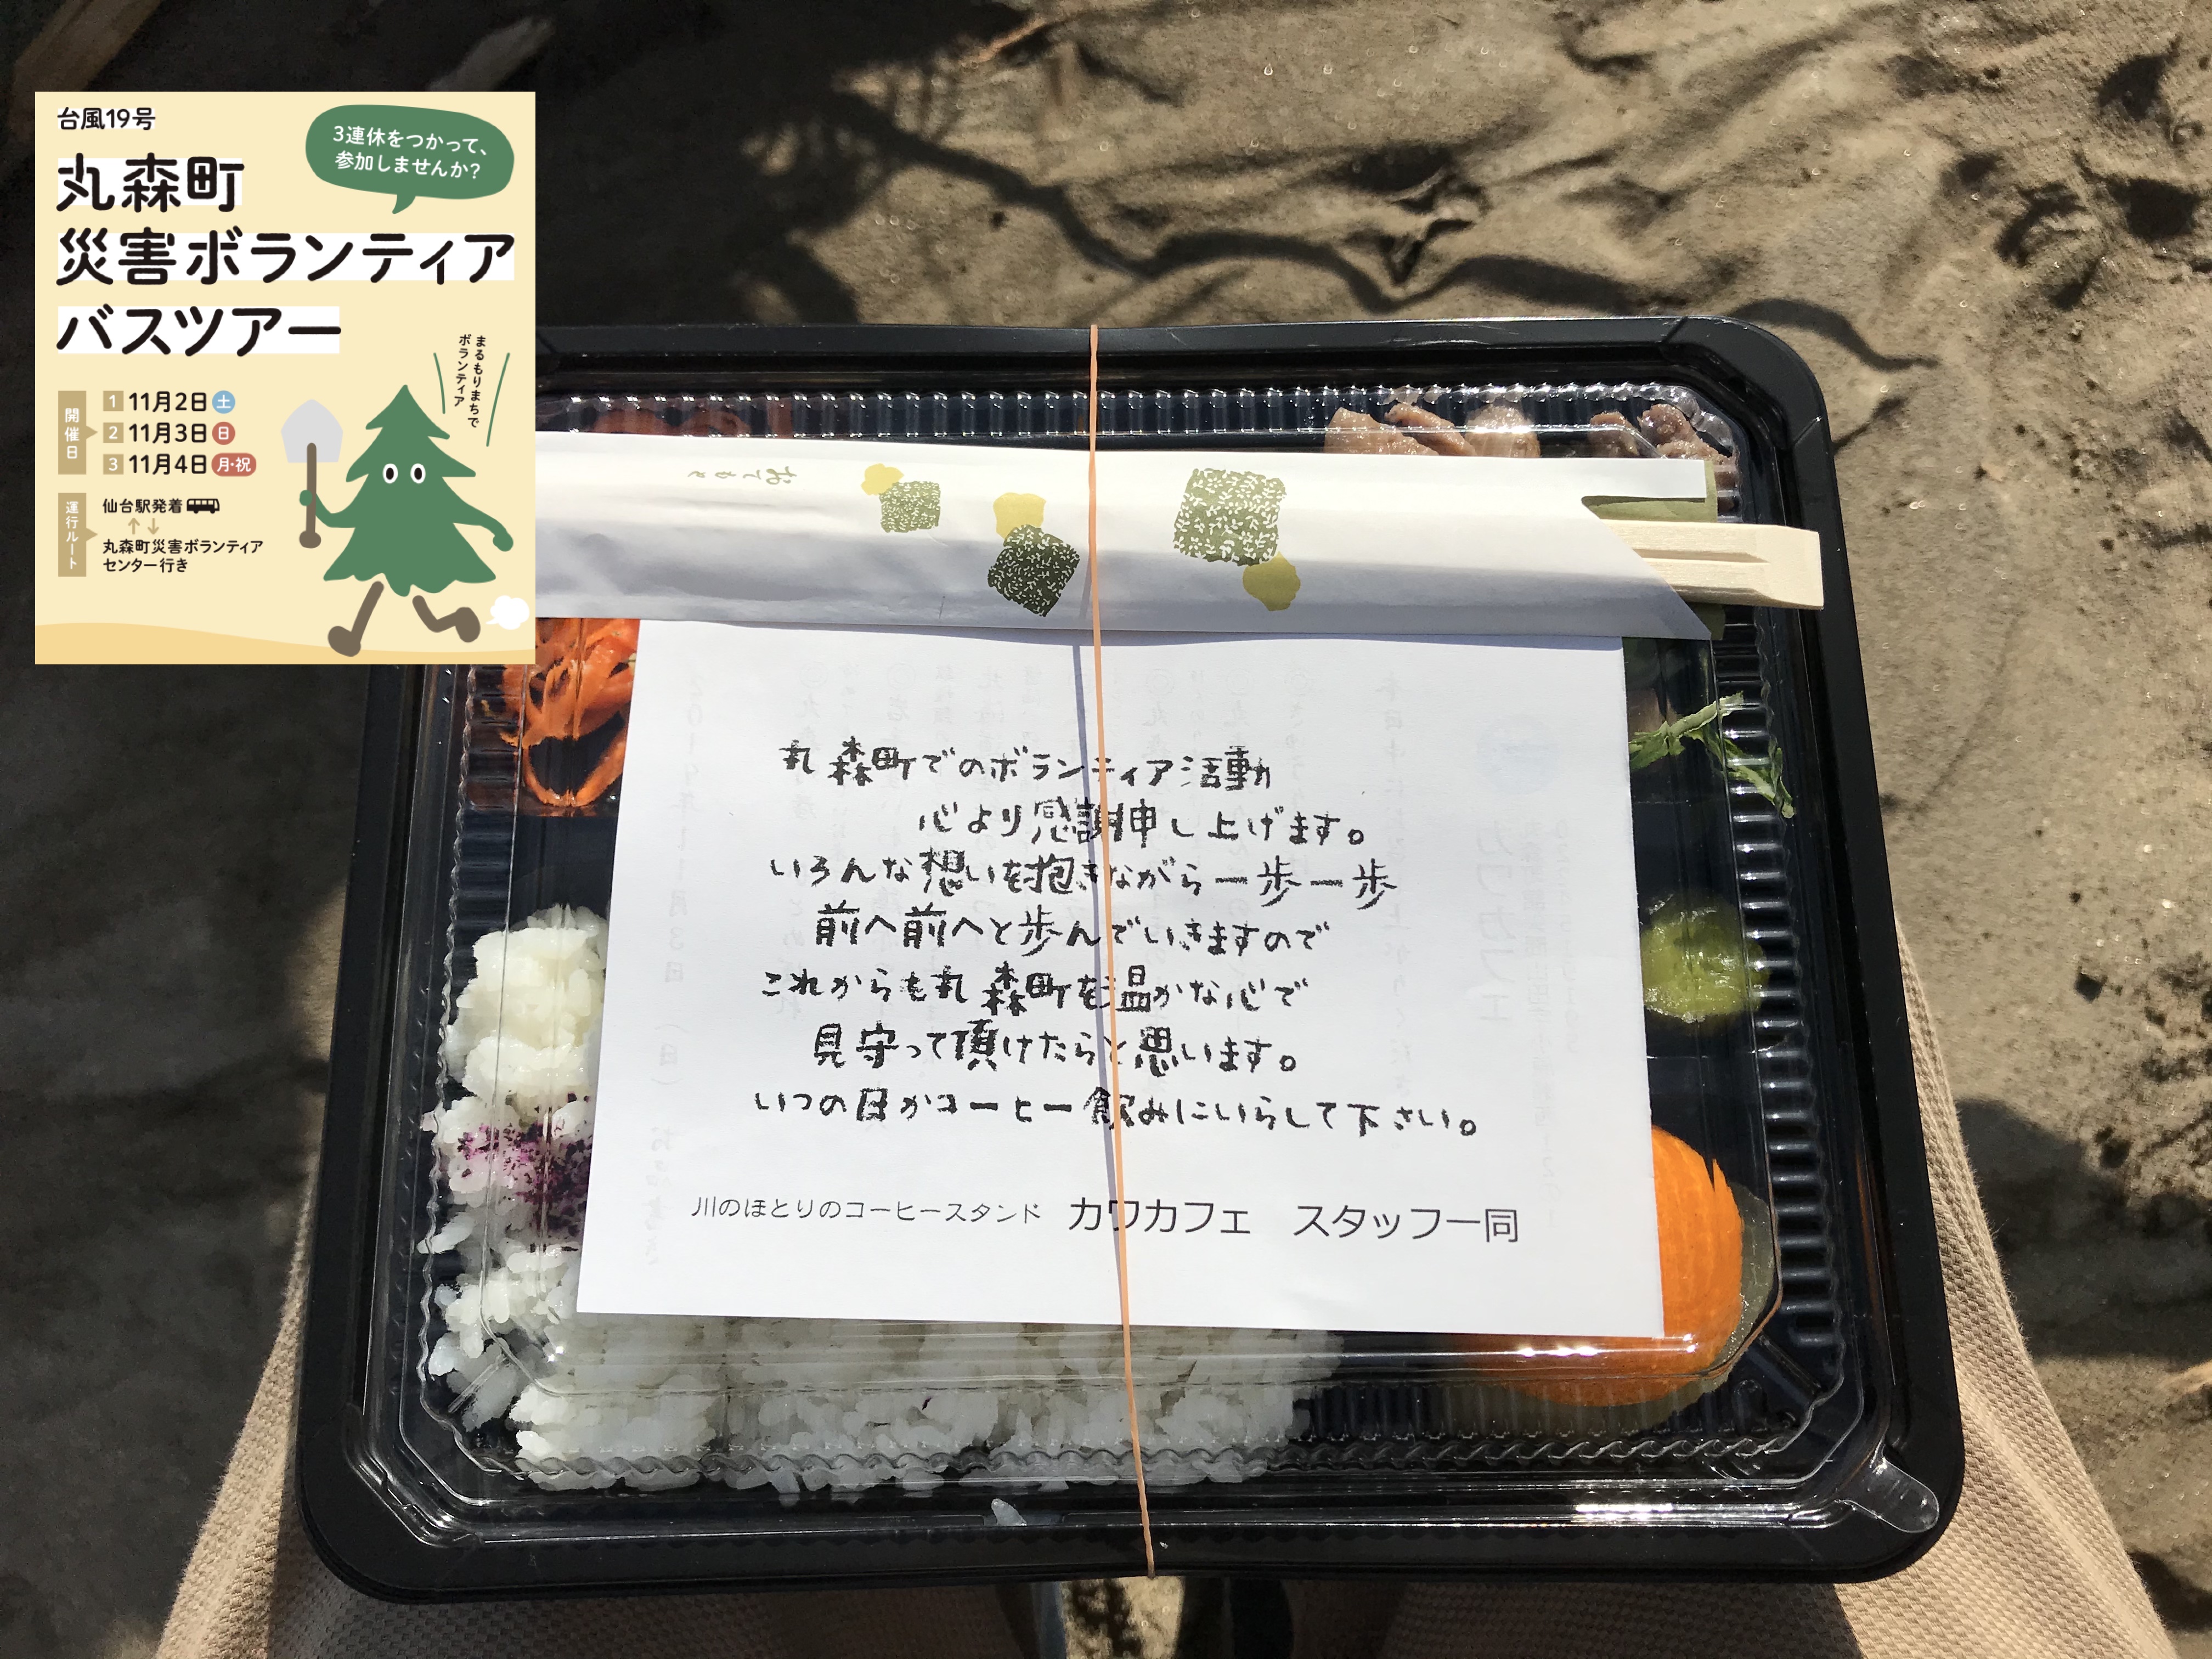 台風19号
3連休をつかって、
参加しませんか?
丸森町
災害ボランティア
バスツアー
まるもりまちで
ボランティア
開催日
1 11月2日 土
2 11月3日 日
3 11月4日 月・祝
運行ルート
仙台駅発着
丸森町災害ボランティア
センター行き
おてもと
丸森町でのボランティア活動
心より感謝申し上げます。
いろんな想いを抱きながら一歩一歩
前へ前へと歩んでいきますので
これからも丸森町を温かな心で
見守って頂けたらと思います。
いつの日かコーヒー飲みにいらして下さい。
川のほとりのコーヒースタンド カワカフェ スタッフ一同